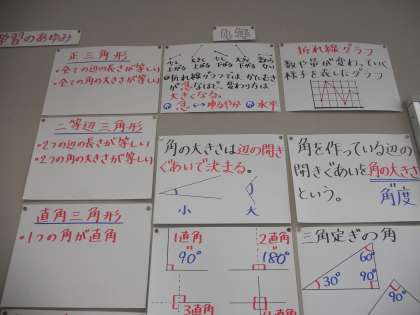 学習のあゆみ
正三角形
・全ての辺の長さが等しい
・全ての角の大きさが等しい
二等辺三角形
・2つの辺の長さが等しい
・2つの角の大きさが等しい
直角三角形
・1つの角が直角
折れ線グラフでは、かたむきが
急なほど、変わり方は
大きくなる。
急 ゆるやか 水平
角の大きさは辺の開き
ぐあいで決まる。
小 大
1直角
90°
2直角
180°
3直角
折れ線グラフ
数や量が変わっていく
様子を表したグラフ
角を作っている辺の
開きぐあいを角の大きさ
という。 角度
三角定ぎの角
60°
30° 90°
90°